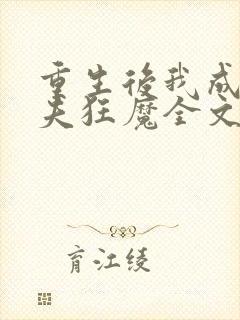 重生後我成
夫狂魔全文
育江綾